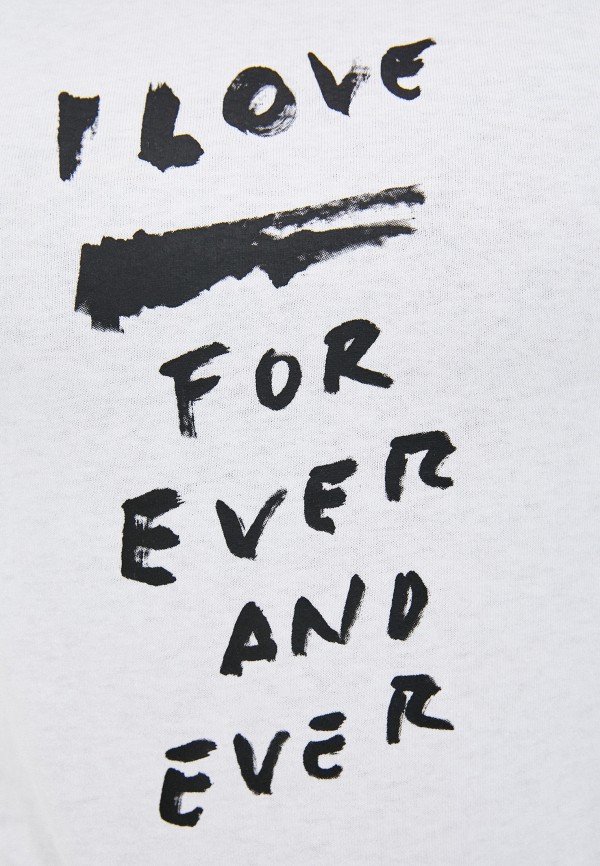 I LOVE
FOR
EVER
AND
EVER